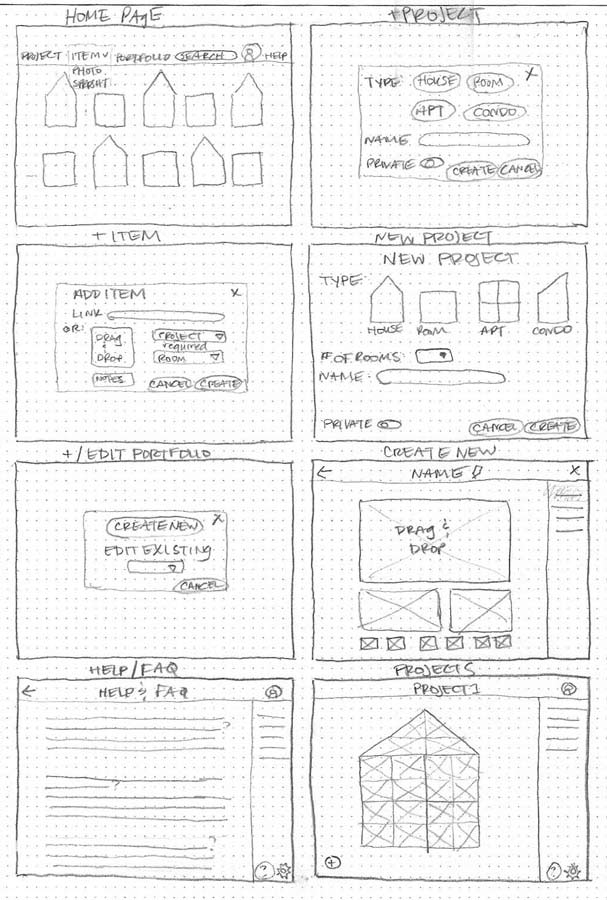 HOME PAGE
PROJECT ITEM PORTFOLIO SEARCH HELP
PHOTO
+PROJECT
TYPE: HOUSE ROOM X
APT CONDO
NAME
PRIVATE CREATE CANCEL
+ ITEM
ADD ITEM X
LINK
OR:
DRAG
&
DROP
PROJECT
required
ROOM
NOTES CANCEL CREATE
NEW PROJECT
NEW PROJECT
TYPE:
HOUSE ROOM APT. CONDO
# OF ROOMS:
NAME:
PRIVATE CANCEL CREATE
+/EDIT PORTFOLIO
CREATE NEW X
EDIT EXISTING
CANCEL
CREATE NEW
← NAME X
DRAG &
DROP
HELP/FAQ
← HELP & FAQ
?
?
?
?
PROJECTS
PROJECT 1
+ ?